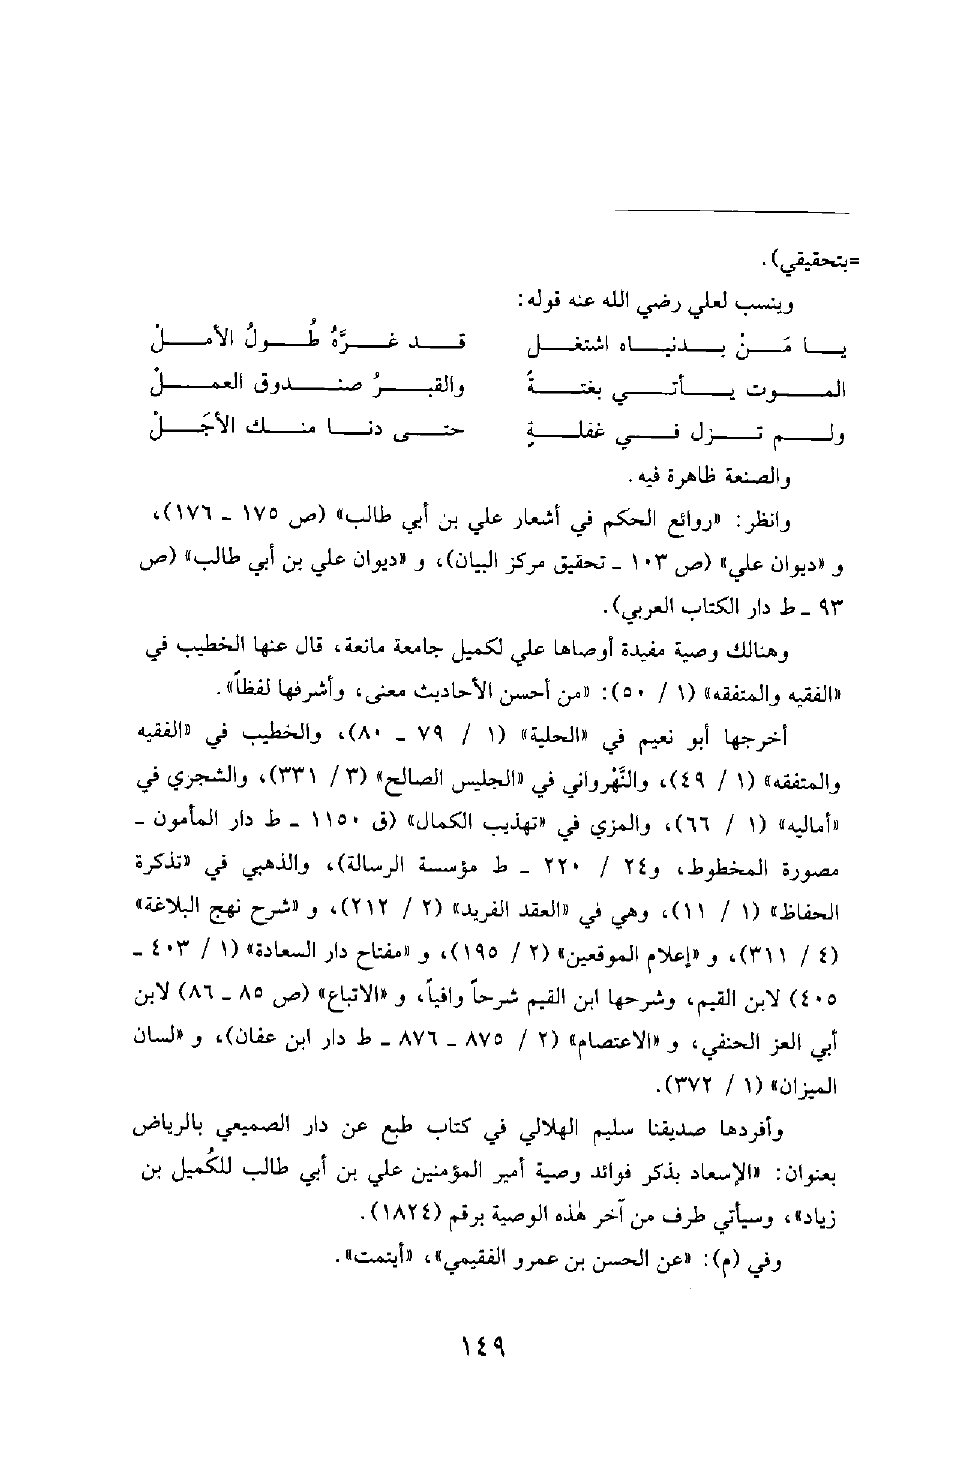 =بتحقيقي).
وينسب لعلي رضي الله عنه قوله:
يا مَنْ بدنياه اشتغل قد غرَّهُ طُولُ الأملْ
الموت يأتي بغتةً والقبرُ صندوق العملْ
ولم تزل في غفلةٍ حتى دنا منك الأجَلْ
والصنعة ظاهرة فيه.
وانظر: «روائع الحكم في أشعار علي بن أبي طالب» (ص ١٧٥ ـ ١٧٦)،
و «ديوان علي» (ص ١٠٣ ـ تحقيق مركز البيان)، و «ديوان علي بن أبي طالب» (ص
٩٣ ـ ط دار الكتاب العربي).
وهنالك وصية مفيدة أوصاها علي لكميل جامعة مانعة، قال عنها الخطيب في
«الفقيه والمتفقه» (١ / ٥٠): «من أحسن الأحاديث معنى، وأشرفها لفظاً».
أخرجها أبو نعيم في «الحلية» (١ / ٧٩ ـ ٨٠)، والخطيب في «الفقيه
والمتفقه» (١ / ٤٩)، والنَّهْرواني في «الجليس الصالح» (٣ / ٣٣١)، والشجري في
«أماليه» (١ / ٦٦)، والمزي في «تهذيب الكمال» (ق ١١٥٠ ـ ط دار المأمون ـ
مصورة المخطوط، و٢٤ / ٢٢٠ ـ ط مؤسسة الرسالة)، والذهبي في «تذكرة
الحفاظ» (١ / ١١)، وهي في «العقد الفريد» (٢ / ٢١٢)، و «شرح نهج البلاغة»
(٤ / ٣١١)، و «إعلام الموقعين» (٢ / ١٩٥)، و «مفتاح دار السعادة» (١ / ٤٠٣ ـ
٤٠٥) لابن القيم، وشرحها ابن القيم شرحاً وافياً، و «الاتباع» (ص ٨٥ ـ ٨٦) لابن
أبي العز الحنفي، و «الاعتصام» (٢ / ٨٧٥ ـ ٨٧٦ ـ ط دار ابن عفان)، و «لسان
الميزان» (١ / ٣٧٢).
وأفردها صديقنا سليم الهلالي في كتاب طبع عن دار الصميعي بالرياض
بعنوان: «الإسعاد بذكر فوائد وصية أمير المؤمنين علي بن أبي طالب للكُميل بن
زياد»، وسيأتي طرف من آخر هٰذه الوصية برقم (١٨٢٤).
وفي (م): «عن الحسن بن عمرو الفقيمي»، «أيتمت».
١٤٩